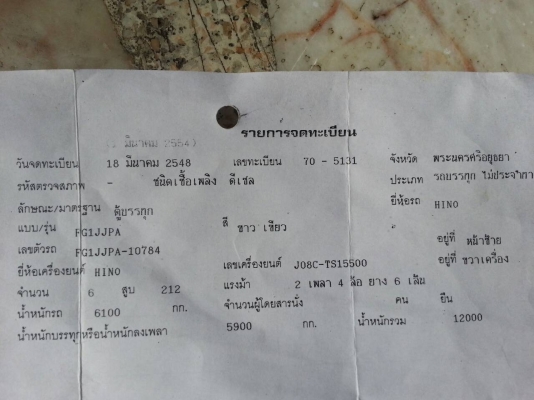 (1 มีนาคม 2554)
รายการจดทะเบียน
วันจดทะเบียน 18 มีนาคม 2548 เลขทะเบียน 70 - 5131 จังหวัด พระนครศรีอยุธยา
รหัสตรวจสภาพ - ชนิดเชื้อเพลิง ดีเซล ประเภท รถบรรทุก ไม่ประจำทาง
ลักษณะ/มาตรฐาน ตู้บรรทุก สี ขาว เขียว ยี่ห้อรถ HINO
แบบ/รุ่น FG1JJPA
เลขตัวรถ FG1JJPA-10784 อยู่ที่ หน้าซ้าย
ยี่ห้อเครื่องยนต์ HINO เลขเครื่องยนต์ J08C-TS15500 อยู่ที่ ขวาเครื่อง
จำนวน 6 สูบ 212 แรงม้า 2 เพลา 4 ล้อ ยาง 6 เส้น
น้ำหนักรถ 6100 กก. จำนวนผู้โดยสารนั่ง คน ยืน
น้ำหนักบรรทุกหรือน้ำหนักลงเพลา 5900 กก. น้ำหนักรวม 12000